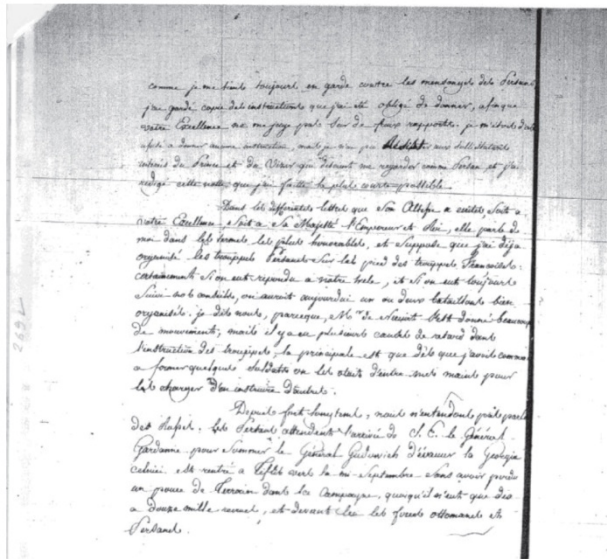 comme je me tiens toujours en garde contre les mensonges des Persans
j'ai gardé copie des instructions que j'ai été obligé de donner, afin que
votre Excellence ne me juge pas sur de faux rapports. je m'étois d'abord
refusé a donner aucune instruction, mais je n'ai pu résister aux sollicitations
du Prince et du Vizir qui disent me regarder comme Persan et j'ai
redigé cette note que j'ai faitte la plus courte possible.
Dans les differentes lettres que Son Altesse a ecrites soit a
votre Excellence, soit a Sa Majesté l'Empereur et Roi, elle parle de
moi dans les termes les plus honorables, et suppose que j'ai deja
organisé les trouppes Persannes sur les pied des trouppes Françaises.
certainement si on eut repondu a notre zele, et si on eut toujours
suivi nos conseils, on auroit aujourdui un ou deux bataillons bien
organisés. je dis nous, parceque, Mr. de s'est donné beaucoup
de mouvements, mais il y a eu plusieurs causes de retard dans
l'instruction des trouppes, la principale est que dès que j'avois commencé
a former quelques soldats on les otoit d'entre mes mains pour
les charger d'en instruire d'autres.
Depuis fort longtems, nous n'entendons plus parler
des Russes. les Persans attendent l'arrivée de S. E. le Général
Gardanne pour sommer le General Gudowich d'évacuer la Georgie
celui ci est rentré a Tiflis vers la mi-Septembre sans avoir perdu
un pouce de Terrein dans la Campagne, quoiqu'il n'eut que dix
a douze mille et devant lui les forces ottomanes et
Persanes.